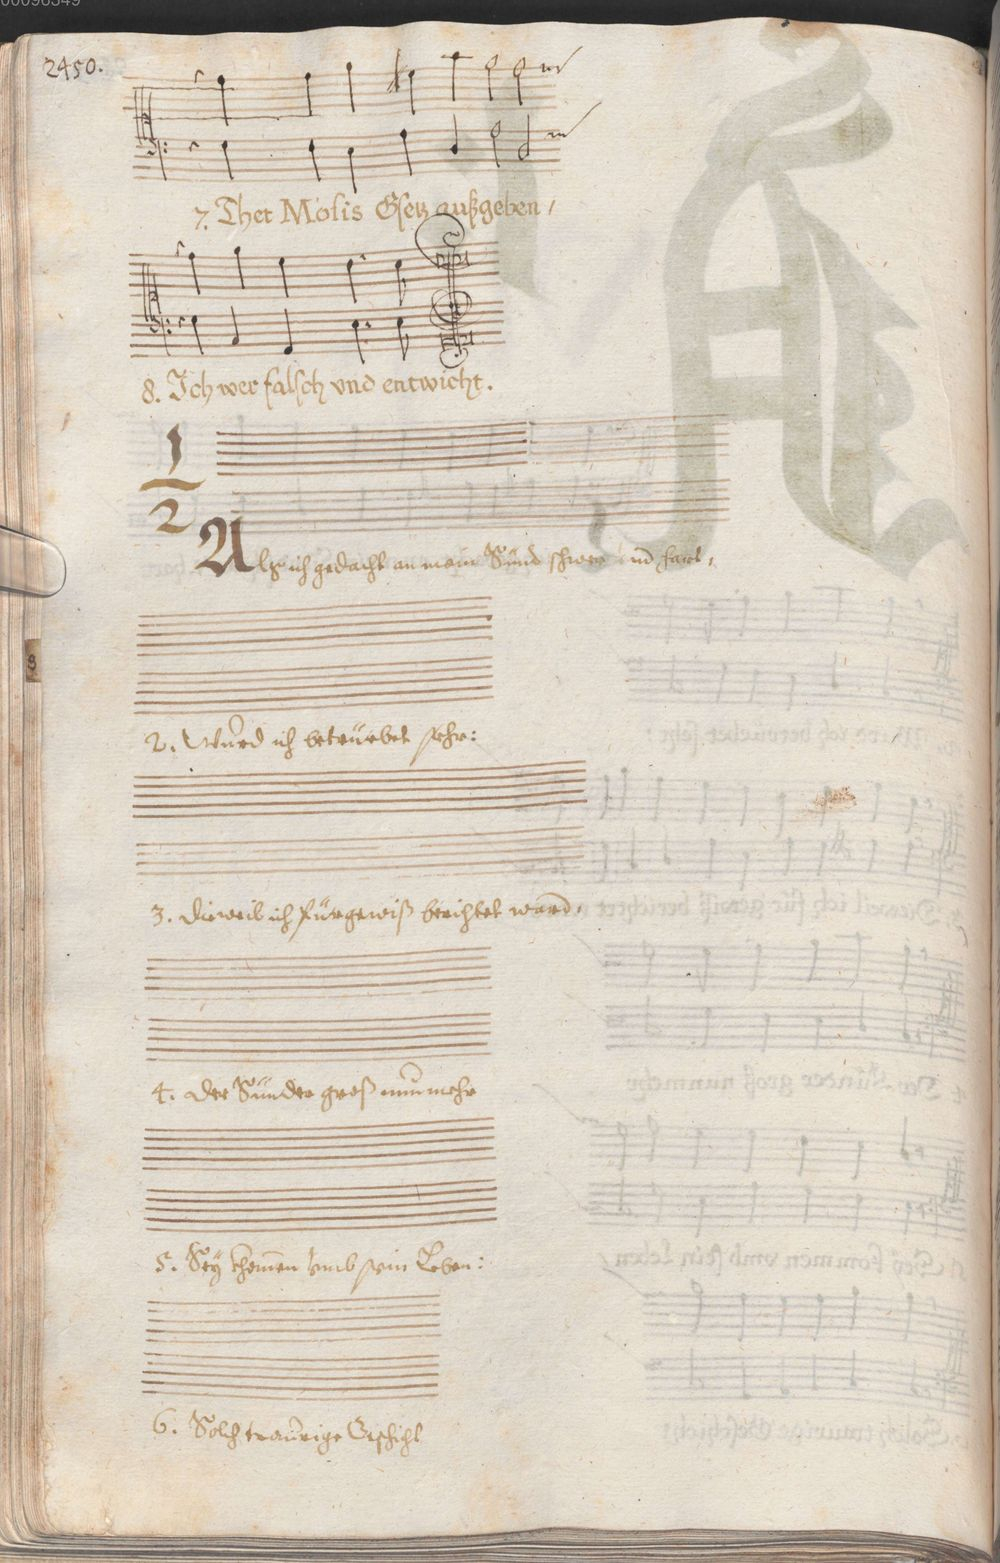 2450.
7. Thet Mosis Gsetz außgeben /
8. Ich wer falsch vnd entwicht.
1
2
Alß ich gedacht an mein Sünd schwer vnd hart,
2. Wurd ich betruebet sehr:
3. Dieweil ich für gewiß berichtet ward,
4. Der Sünder groß nunmehr
5. Sey khomen vmb sein Leben:
6. Solch traurige Gschicht